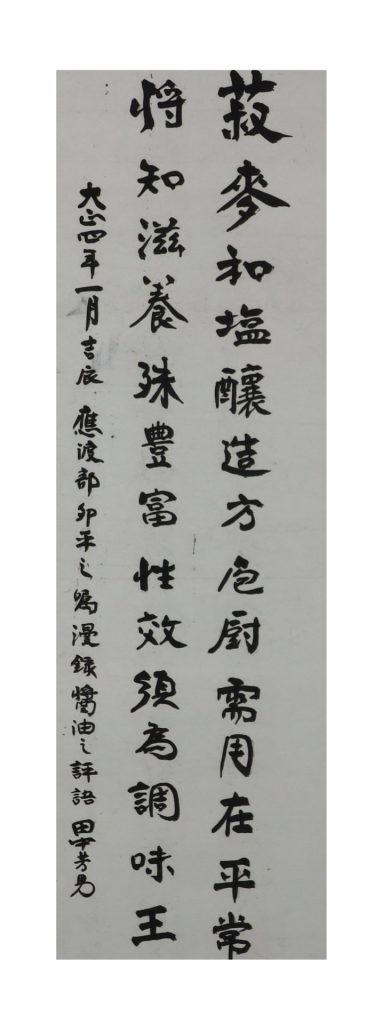 菽麥和塩釀造方庖厨需用在平常
将知滋養殊豊富性效須為調味王
大正四年一月吉辰 應渡部卯平之嘱漫録醬油之評語 田中芳男